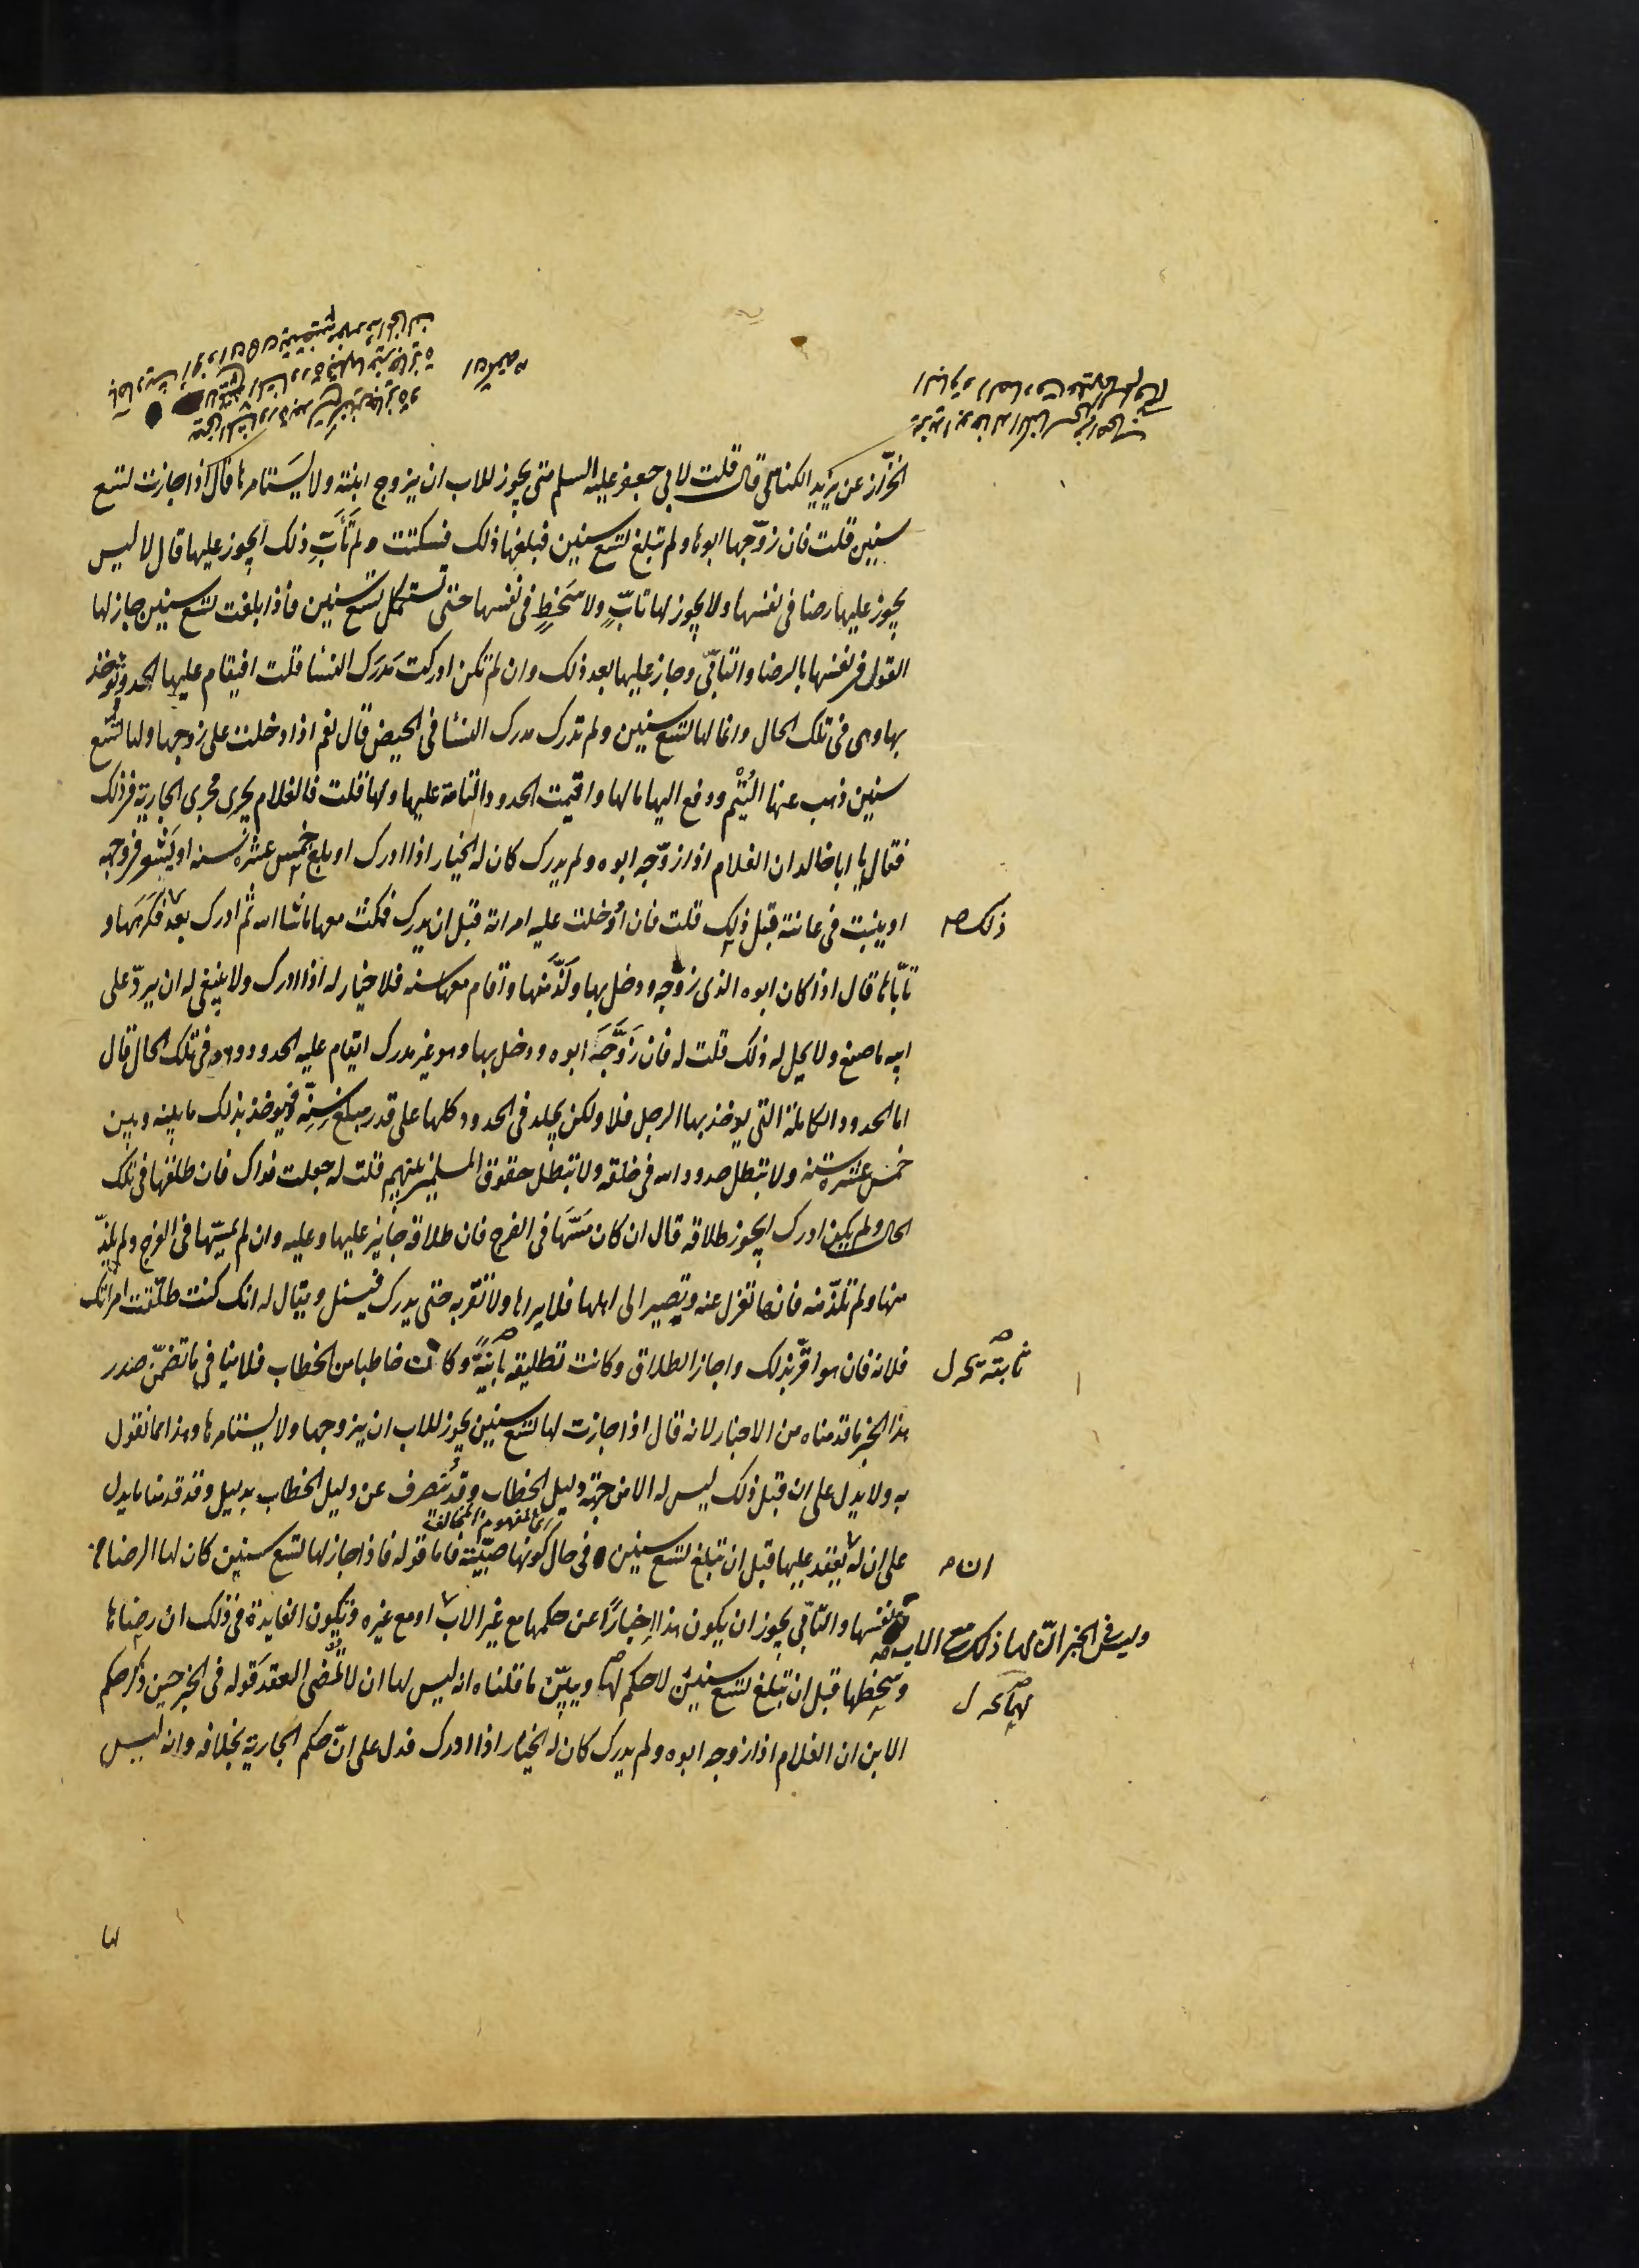 الخزّاز عن يزيد الكناسى قال قلت لابي جعفر عليه السلم متى يجوز للاب ان يزوج ابنته ولا يستامرها قال اذا جازت تسع
سنين قلت فان زوّجها ابوها ولم تبلغ تسع سنين فبلغها ذلك فسكتت ولم تأبّ ذلك ايجوز عليها قال لا ليس
يجوز عليها رضا فى نفسها ولا يجوز لها تابّ ولا سخط فى نفسها حتى تستكمل تسع سنين فاذا بلغت تسع سنين جاز لها
القول فى نفسها بالرضا والتابّى وجاز عليها بعد ذلك وان لم تكن ادركت مدرك النسا قلت افيقام عليها الحد وتوخذ
بها وهى فى تلك الحال وانما لها تسع سنين ولم تدرك مدرك النسا فى الحيض قال نعم اذا دخلت على زوجها ولها تسع
سنين ذهب عنها اليُتْم ودفع اليها مالها واقيمت الحدود التامة عليها ولها قلت فالغلام يجرى مجرى الجارية فى ذلك
فقال يا ابا خالد ان الغلام اذا زوّجه ابوه ولم يدرك كان له الخيار اذا ادرك او بلغ خمس عشرة سنه او يشعر فى وجهه
او ينبت فى عانته قبل ذلك قلت فان ادخلت عليه امراته قبل ان يدرك فمكث معها ماشا الله ثم ادرك بعد فكرهها و
ذلك
تابّاها قال اذا كان ابوه الذى زوّجه ودخل بها ولذّ منها واقام معها سنه فلا خيار له اذا ادرك ولا ينبغى له ان يردّ على
ابيه ما صنع ولا يحل له ذلك قلت له فان زَوَّجَه ابوه ودخل بها وهو غير مدرك ايقام عليه الحدود وهو فى تلك الحال قال
اما الحدود الكاملة التى يوخذ بها الرجل فلا ولكن يجلد فى الحدود كلها على قدر مبلغ سنّه فيوخذ بذلك ما بينه وبين
خمس عشرة سنه ولا تبطل حدود الله فى خلقه ولا تبطل حقوق المسلمين بينهم قلت له جعلت فداك فان طلقها فى تلك
الحال ولم يكن ادرك ايجوز طلاقه قال ان كان مسّها فى الفرج فان طلاقه جايز عليها وعليه وان لم يمسّها فى الفرج ولم يلذّ
منها ولم تلذّ منه فانها تعزل عنه وتصير الى اهلها فلا يراها ولا تقربه حتى يدرك فيسئل ويقال له انك كنت طلقت امراتك
فلانه فان هو اقرّ بذلك واجاز الطلاق وكانت تطليقه باينةً وكان خاطبا من الخطاب فلا ينافي ما تضمّن صدر
ثابتة
هذا الخبر ما قدمناه من الاخبار لانه قال اذا جازت لها تسع سنين يجوز للاب ان يزوجها ولا يستامرها وهذا مما نقول
به ولا يدل على ان قبل ذلك ليس له الا من جهة دليل الخطاب وقد يُنصرف عن دليل الخطاب بدليل وقد قدمنا ما يدل
اى المفهوم المخالفة
على ان له يعقد عليها قبل ان تبلغ تسع سنين فى حال كونها صبيّة فاما قوله فاذا جاز لها تسع سنين كان لها الرضا فى
ان
نفسها والتابّى يجوز ان يكون هذا اخبارًا عن حكمها مع غير الاب او مع غيره وتكون الفايدة فى ذلك ان رضاها
وليس فى الخبر ان لها ذلك مع الاب
وسخطها قبل ان تبلغ تسع سنين لا حكم لها ويبيّن ما قلناه انه ليس لها ان لا تمضى العقد قوله فى الخبر حين ذكر حكم
لهما
الابن ان الغلام اذا زوجه ابوه ولم يدرك كان له الخيار اذا ادرك فدل على انّ حكم الجارية بخلافه وانه ليس
لها